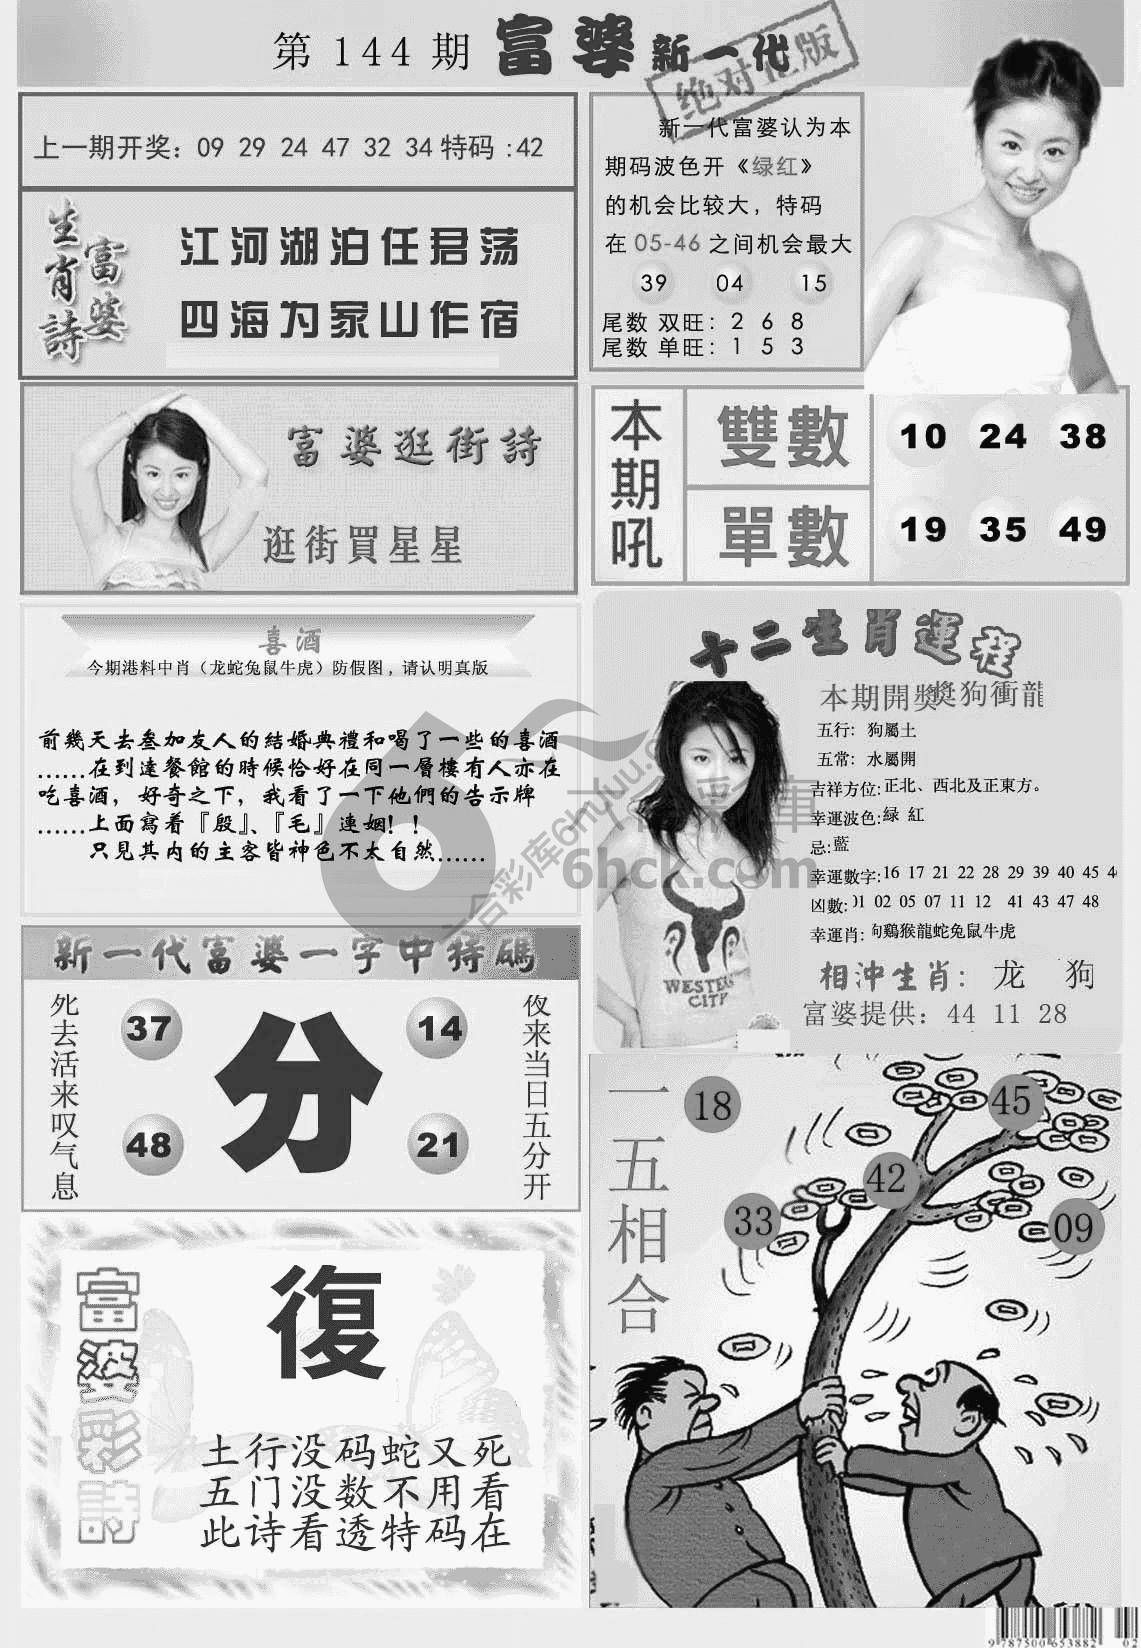 第 144 期 富婆 新一代
绝对正版
上一期开奖：09 29 24 47 32 34 特码 :42
生肖詩
富婆
江河湖泊任君荡
四海为家山作宿
新一代富婆认为本
期码波色开《绿红》
的机会比较大，特码
在 05-46 之间机会最大
39 04 15
尾数 双旺：2 6 8
尾数 单旺：1 5 3
富婆逛街詩
逛街買星星
本期吼
雙數 10 24 38
單數 19 35 49
喜酒
今期港料中肖（龙蛇兔鼠牛虎）防假图，请认明真版
前幾天去叁加友人的结婚典禮和喝了一些的喜酒
……在到達餐館的時候恰好在同一層樓有人亦在
吃喜酒，好奇之下，我看了一下他們的告示牌
……上面寫着『殷』、『毛』連姻！！
只見其内的主客皆神色不太自然……
十二生肖運程
本期開獎獎狗衝龍
五行：狗屬土
五常：水屬開
吉祥方位:正北、西北及正東方。
幸運波色:绿 紅
忌:藍
幸運數字:16 17 21 22 28 29 39 40 45 4
凶數:01 02 05 07 11 12 41 43 47 48
幸運肖:狗鷄猴龍蛇兔鼠牛虎
相沖生肖：龙 狗
富婆提供：44 11 28
WESTERN
CITY
六合彩库6htuku.c
六合彩庫
6hck.com
新一代富婆一字中特碼
死去活来叹气息
37 14
分
48 21
夜来当日五分开
富婆彩詩
復
土行没码蛇又死
五门没数不用看
此诗看透特码在
一五相合
18 45
42
33 09
9 787500 653882 02